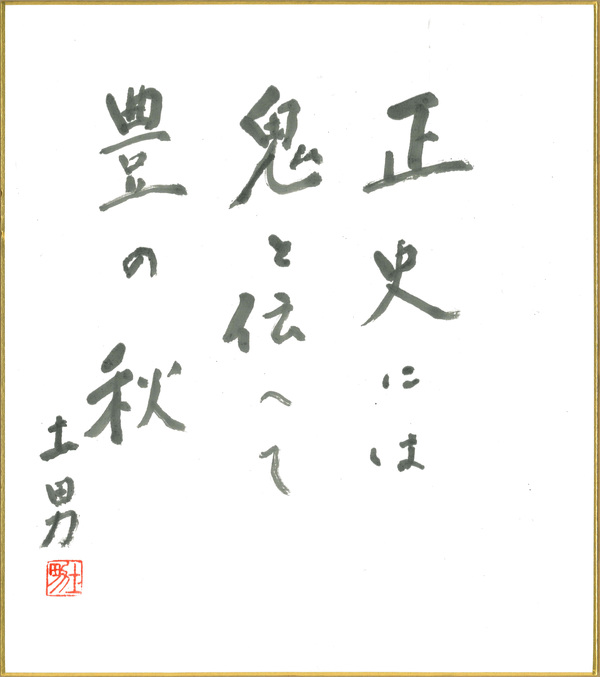 正史には
鬼と伝へて
豊の秋
土男
土男